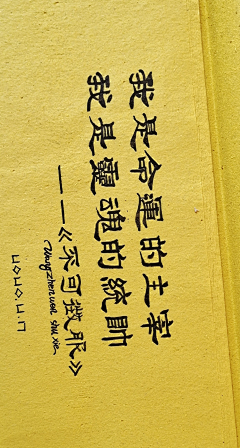 我是命運的主宰
我是靈魂的統帥
——《不可徵服》
Wangzhenwen shu xie